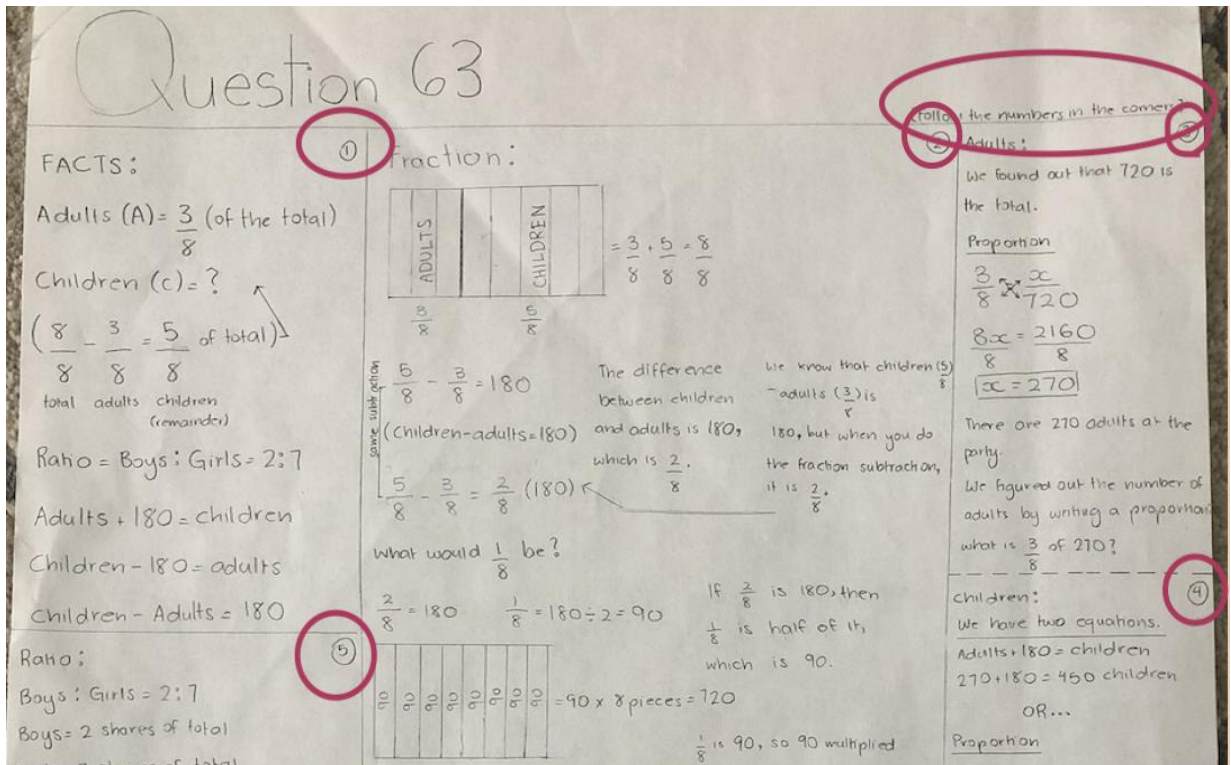 Question 63
(follow the numbers in the corners)
①
FACTS:
Adults (A) = 3/8 (of the total)
Children (c) = ?
(8/8 - 3/8 = 5/8 of total)
total adults children
(remainder)
Ratio = Boys : Girls = 2:7
Adults + 180 = children
Children - 180 = adults
Children - Adults = 180
②
Fraction:
ADULTS CHILDREN
= 3/8 + 5/8 = 8/8
3/8 5/8
same subtraction
5/8 - 3/8 = 180
(Children-adults=180)
5/8 - 3/8 = 2/8 (180)
The difference
between children
and adults is 180,
which is 2/8.
We know that children (5/8)
- adults (3/8) is
180, but when you do
the fraction subtraction,
it is 2/8.
What would 1/8 be?
2/8 = 180 1/8 = 180 ÷ 2 = 90
If 2/8 is 180, then
1/8 is half of it,
which is 90.
90 90 90 90 90 90 90 90 = 90 x 8 pieces = 720
1/8 is 90, so 90 multiplied
③
Adults:
We found out that 720 is
the total.
Proportion
3/8 x/720
8x/8 = 2160/8
x = 270
There are 270 adults at the
party.
We figured out the number of
adults by writing a proportion
what is 3/8 of 270?
④
Children:
We have two equations.
Adults + 180 = children
270 + 180 = 450 children
OR...
Proportion
⑤
Ratio:
Boys : Girls = 2:7
Boys = 2 shares of total